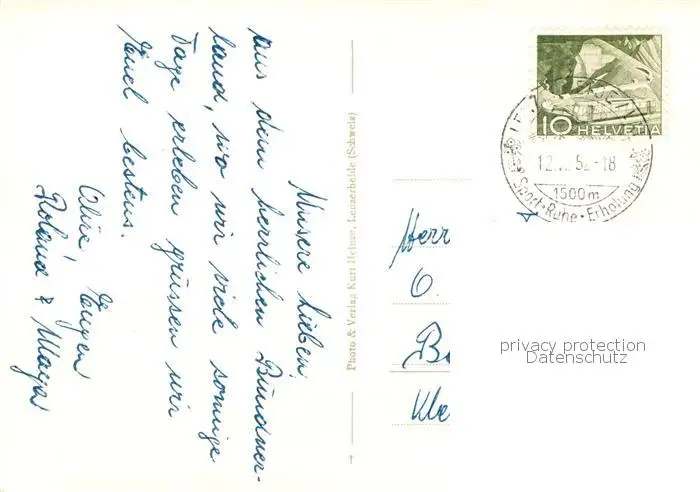 Unsere Lieben!
Aus dem herrlichen Bündner-
land, wo wir viele sonnige
Tage erleben grüssen wir
Euch bestens.
Eugen
Roland &
Photo & Verlag Kurt Heinze, Lenzerheide (Schweiz)
10 HELVETIA
12. 52-18
1500m
Sport-Ruhe-Erholung
Herr
O.
privacy protection
Datenschutz